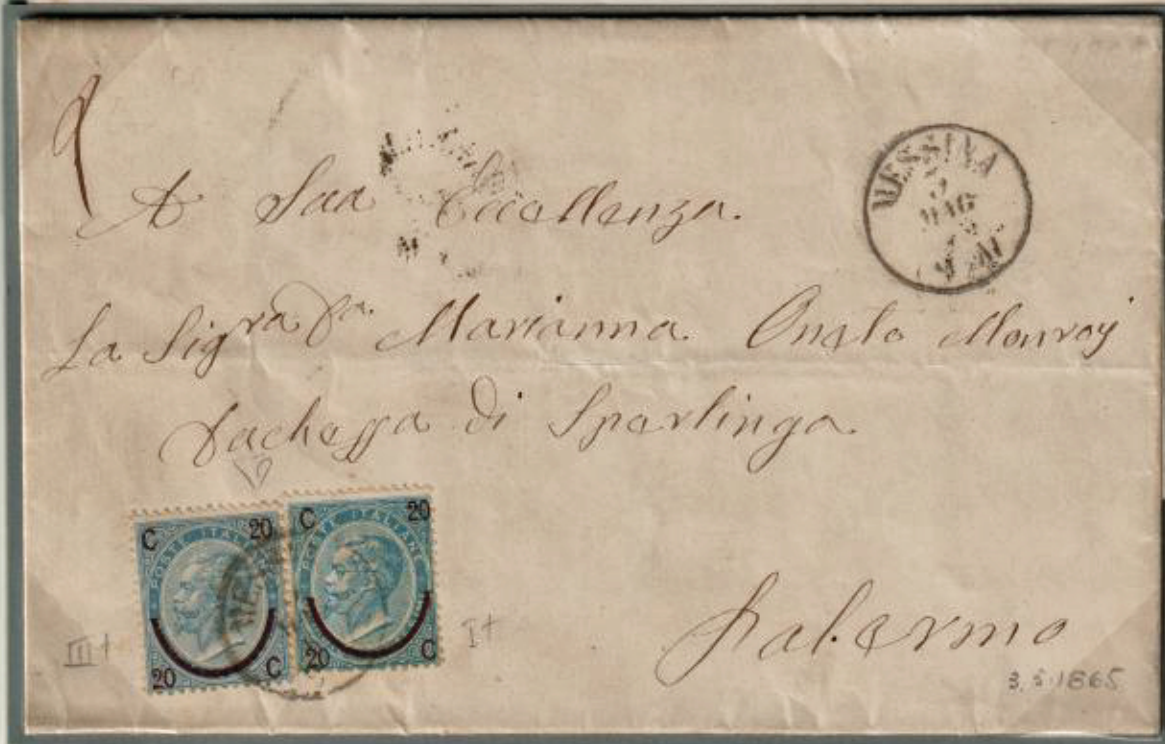 A Sua Eccellenza.
MESSINA
MAG
La Sig.ra Da. Marianna. Onato Monroy
Duchessa di Sperlinga.
C 20
POSTE ITALIANE
20 C
C 20
POSTE ITALIANE
20 C
III+
I+
Palermo
3.5.1865